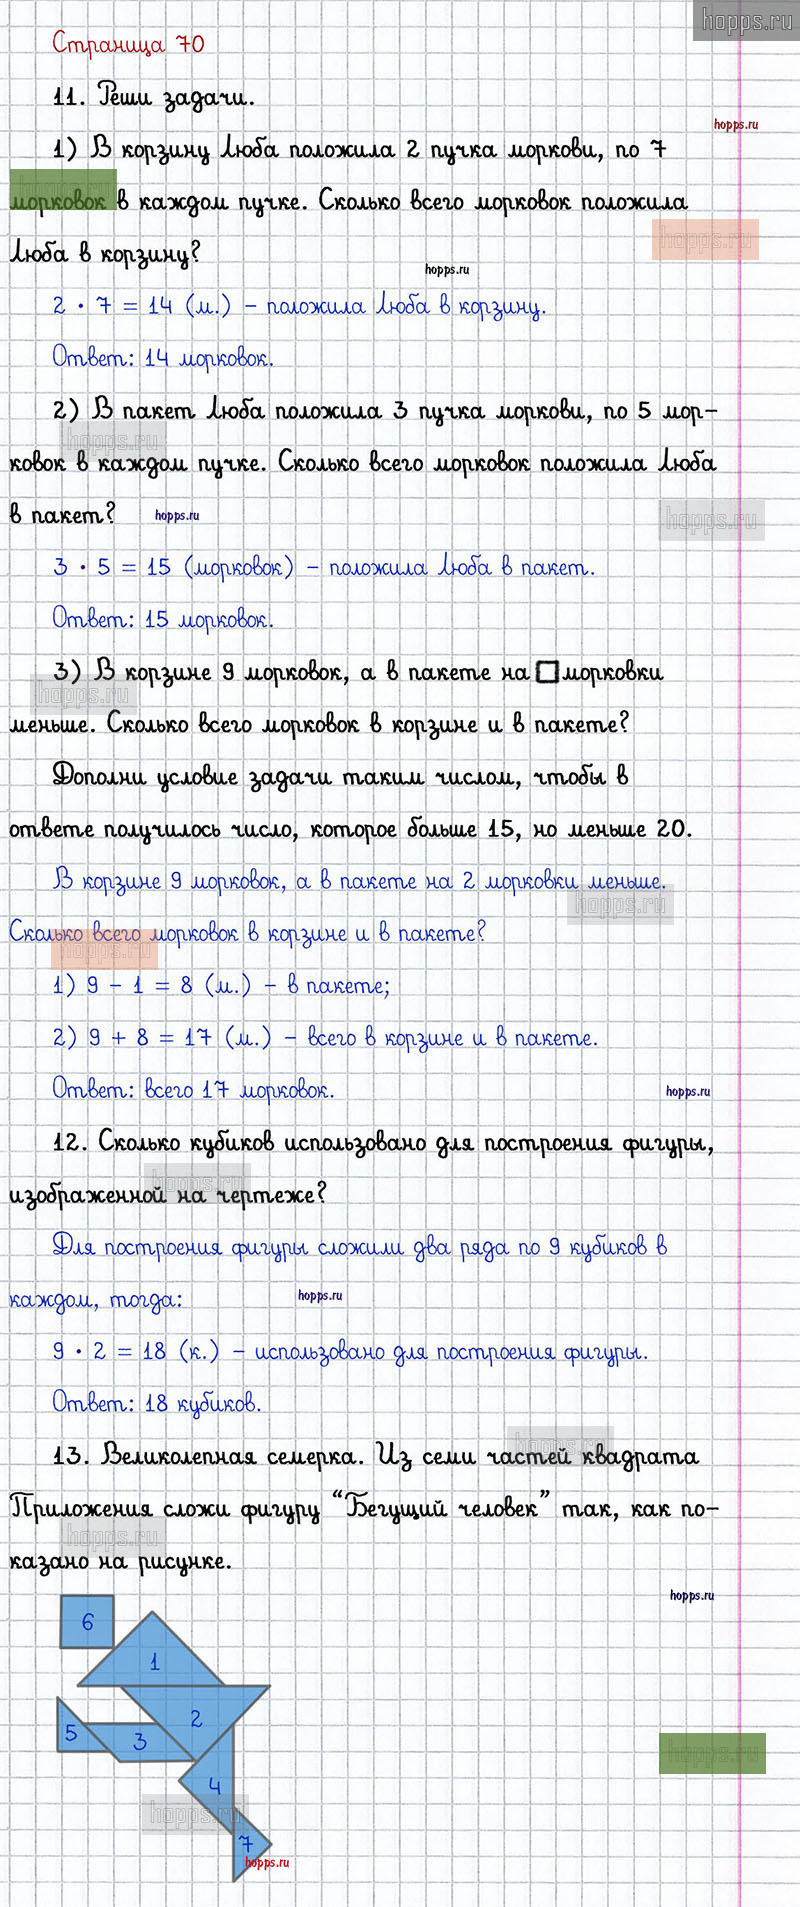 hopps.ru
Страница 70
11. Реши задачи.
hopps.ru
1) В корзину Люба положила 2 пучка моркови, по 7
hopps.ru
морковок в каждом пучке. Сколько всего морковок положила
hopps.ru
Люба в корзину?
hopps.ru
2 · 7 = 14 (м.) – положила Люба в корзину.
Ответ: 14 морковок.
2) В пакет Люба положила 3 пучка моркови, по 5 мор-
hopps.ru
ковок в каждом пучке. Сколько всего морковок положила Люба
в пакет?
hopps.ru
hopps.ru
3 · 5 = 15 (морковок) – положила Люба в пакет.
Ответ: 15 морковок.
3) В корзине 9 морковок, а в пакете на □ морковки
hopps.ru
меньше. Сколько всего морковок в корзине и в пакете?
Дополни условие задачи таким числом, чтобы в
ответе получилось число, которое больше 15, но меньше 20.
В корзине 9 морковок, а в пакете на 2 морковки меньше.
hopps.ru
Сколько всего морковок в корзине и в пакете?
hopps.ru
1) 9 – 1 = 8 (м.) – в пакете;
2) 9 + 8 = 17 (м.) – всего в корзине и в пакете.
Ответ: всего 17 морковок.
hopps.ru
12. Сколько кубиков использовано для построения фигуры,
hopps.ru
изображенной на чертеже?
Для построения фигуры сложили два ряда по 9 кубиков в
каждом, тогда:
hopps.ru
9 · 2 = 18 (к.) – использовано для построения фигуры.
Ответ: 18 кубиков.
hopps.ru
13. Великолепная семерка. Из семи частей квадрата
Приложения сложи фигуру “Бегущий человек” так, как по-
hopps.ru
казано на рисунке.
hopps.ru
6
1
2
5
3
hopps.ru
4
hopps.ru
7
hopps.ru